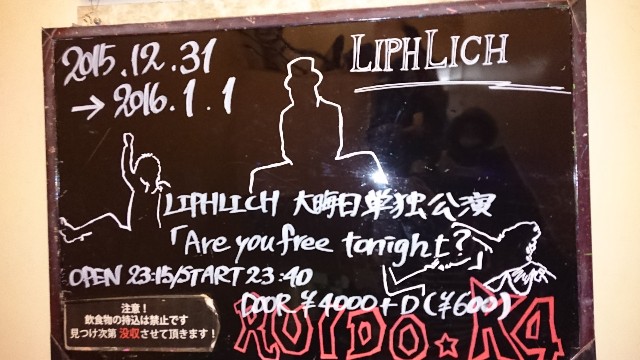 2015.12.31
→ 2016.1.1
LIPHLICH
LIPHLICH 大晦日単独公演
「Are you free tonight?
OPEN 23:15/START 23:40
DOOR ¥4000+D(¥600)
注意！
飲食物の持込は禁止です
見つけ次第 没収させて頂きます！
RUIDO★K4